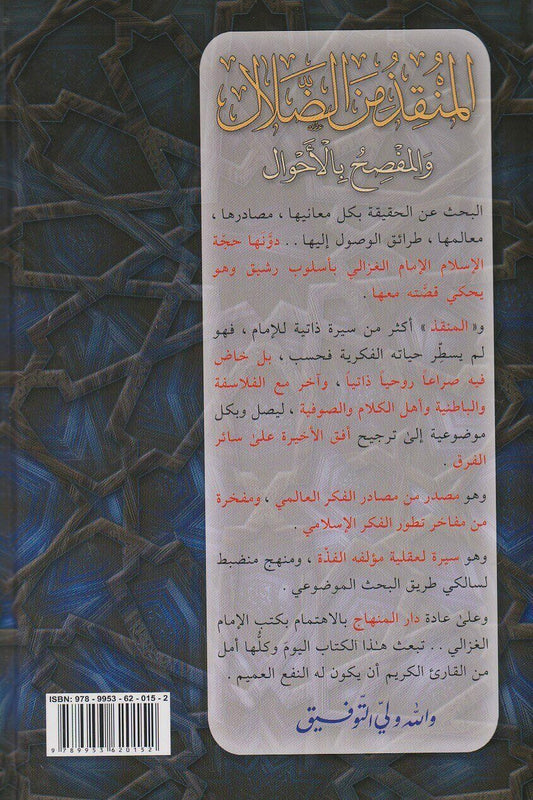 المُنْقِذُ مِنَ الضَّلَالِ
وَالمُفْصِحُ بِالْأَحْوَالِ
البحث عن الحقيقة بكل معانيها ، مصادرها ،
معالمها ، طرائق الوصول إليها . . دوَّنها حجَّة
الإسلام الإمام الغزالي بأسلوب رشيق وهو
يحكي قصَّته معها .
و« المنقذ » أكثر من سيرة ذاتية للإمام، فهو
لم يسطِّر حياته الفكرية فحسب ، بل خاض
فيه صراعاً روحياً ذاتياً ، وآخر مع الفلاسفة
والباطنية وأهل الكلام والصوفية ، ليصل وبكل
موضوعية إلى ترجيح أفق الأخيرة على سائر
الفرق .
وهو مصدر من مصادر الفكر العالمي ، ومفخرة
من مفاخر تطور الفكر الإسلامي .
وهو سيرة لعقلية مؤلفه الفذَّة ، ومنهج منضبط
لسالكي طريق البحث الموضوعي .
وعلى عادة دار المنهاج بالاهتمام بكتب الإمام
الغزالي . . تبعث هذا الكتاب اليوم وكلُّها أمل
من القارئ الكريم أن يكون له النفع العميم .
والله ولي التَّوفيق
ISBN: 978 - 9953 - 62 - 015 - 2
9 789953 620152